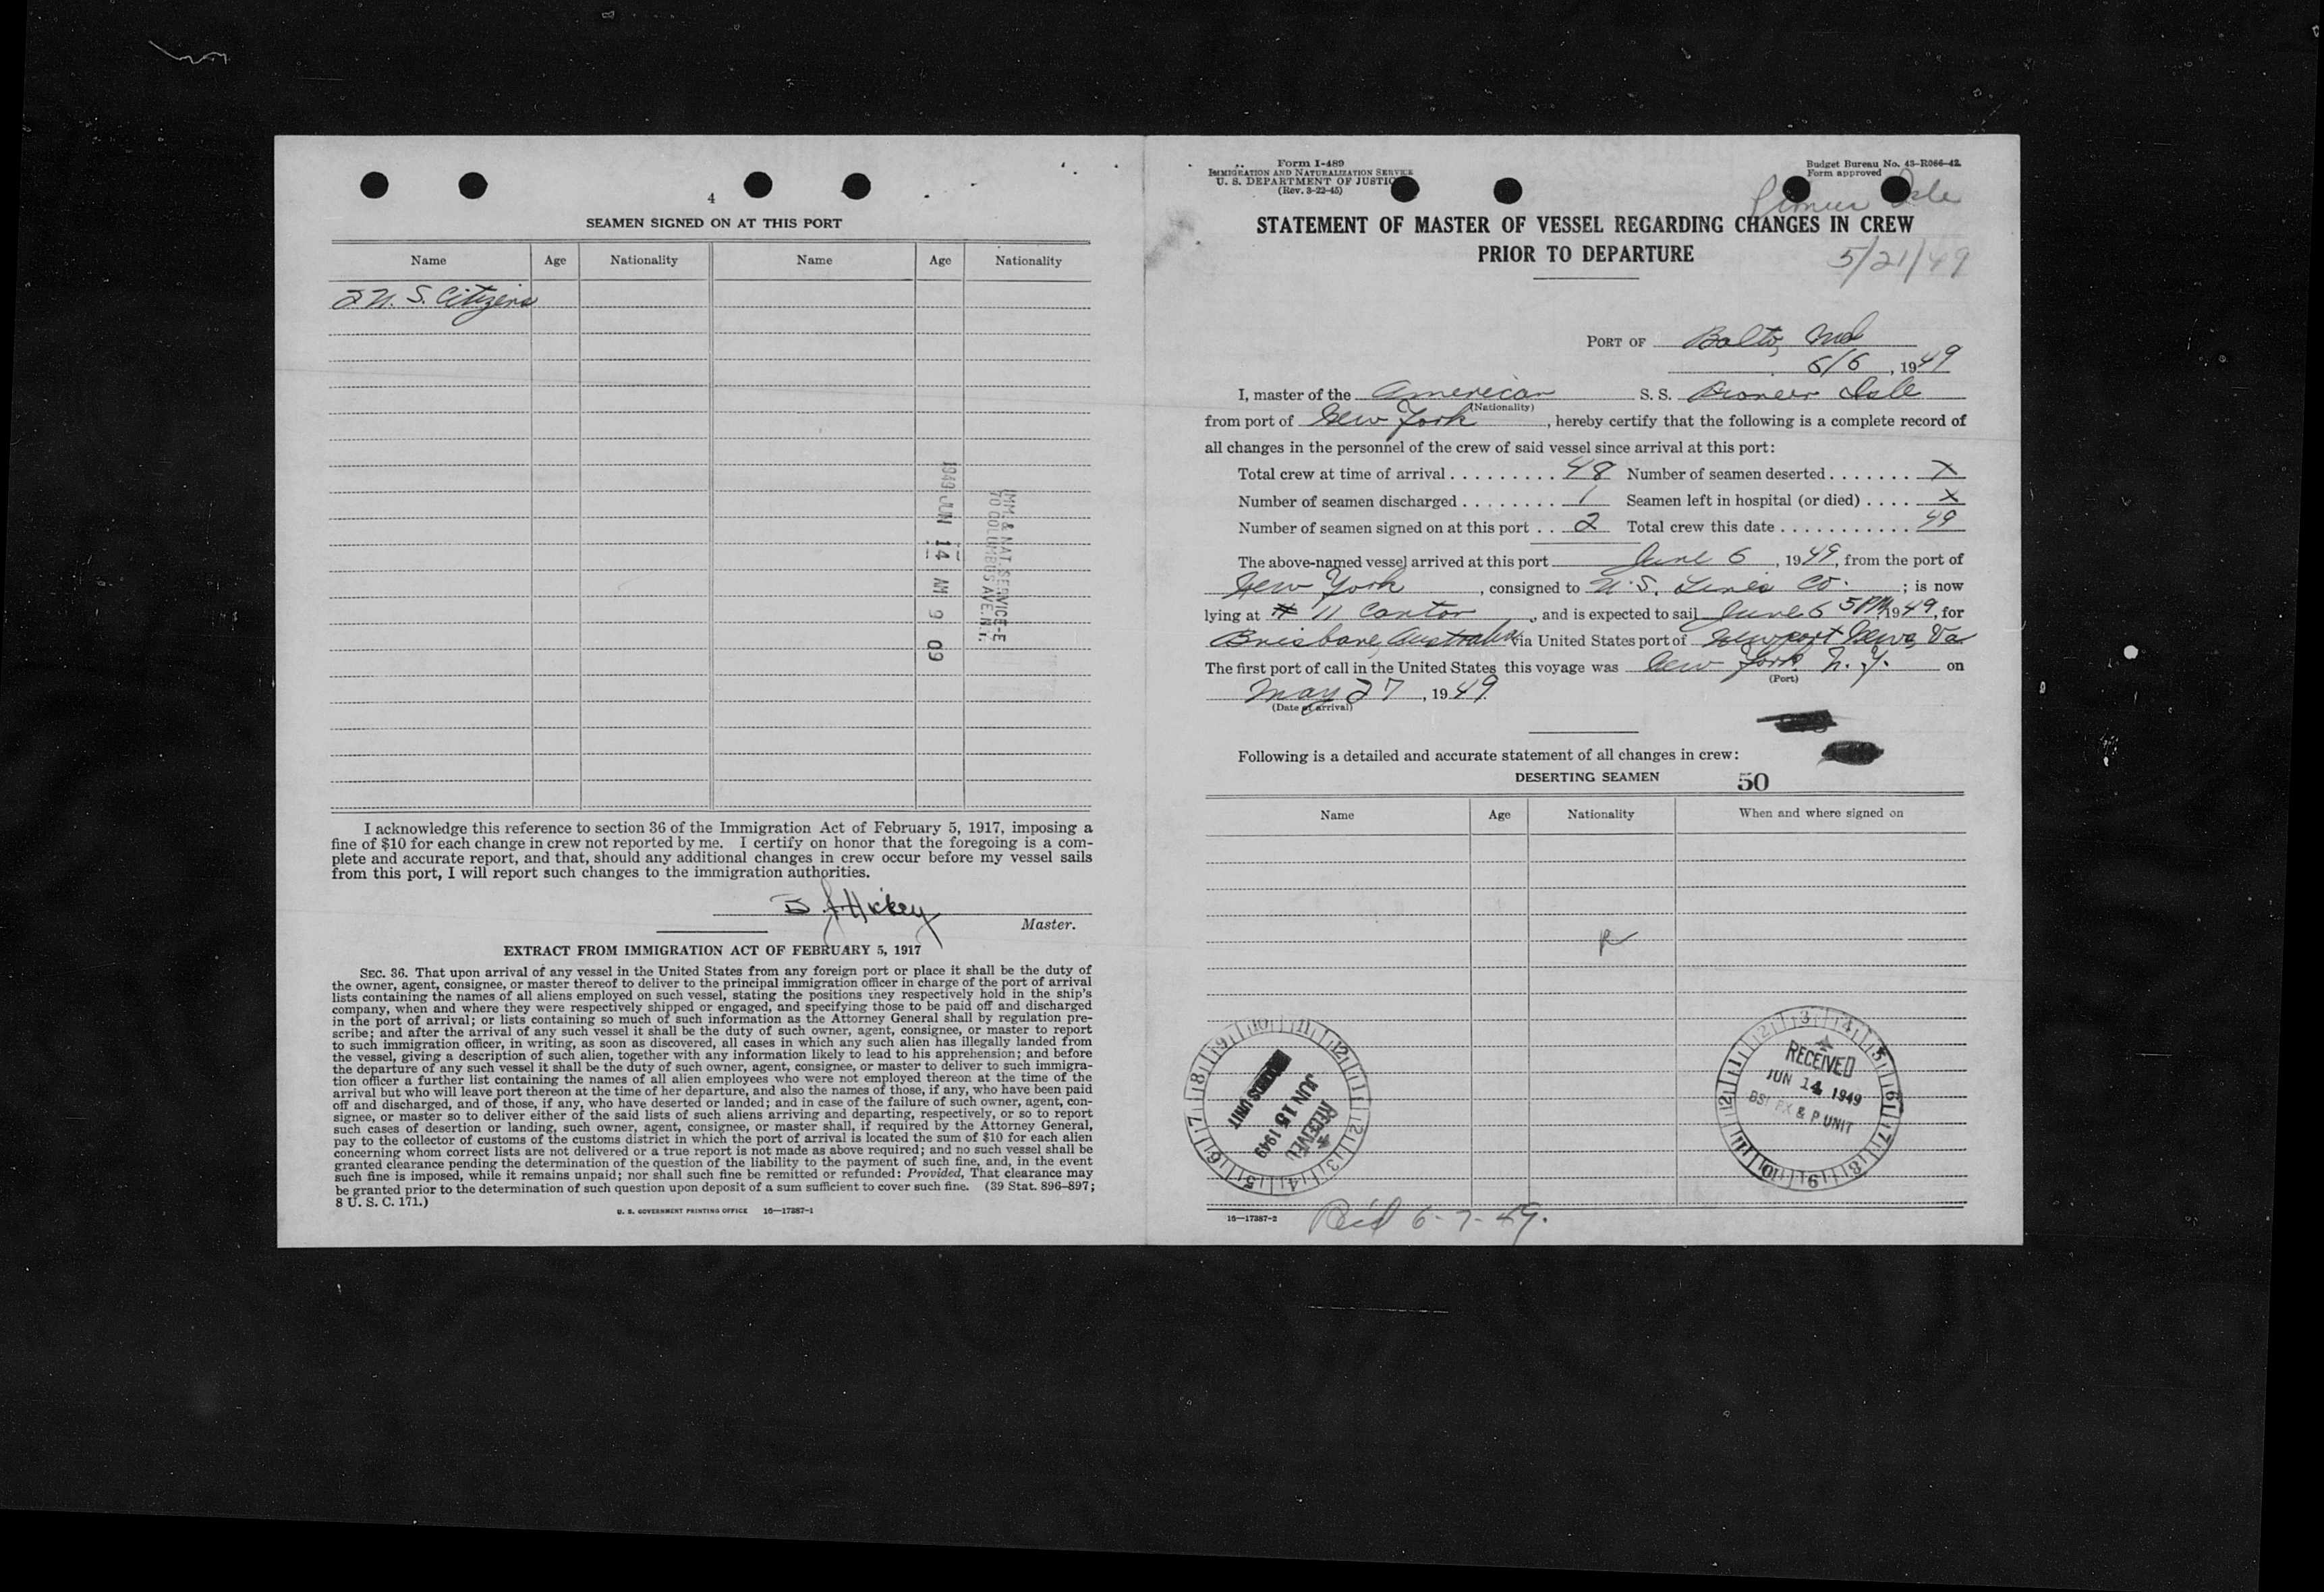 4
SEAMEN SIGNED ON AT THIS PORT
Name Age Nationality Name Age Nationality
2 U. S. Citizens
1949 JUN 14 AM 9 09
IMM. & NAT. SERVICE-E
70 COLUMBUS AVE. N.Y.
I acknowledge this reference to section 36 of the Immigration Act of February 5, 1917, imposing a
fine of $10 for each change in crew not reported by me. I certify on honor that the foregoing is a com-
plete and accurate report, and that, should any additional changes in crew occur before my vessel sails
from this port, I will report such changes to the immigration authorities.
B J Hickey
Master.
EXTRACT FROM IMMIGRATION ACT OF FEBRUARY 5, 1917
SEC. 36. That upon arrival of any vessel in the United States from any foreign port or place it shall be the duty of
the owner, agent, consignee, or master thereof to deliver to the principal immigration officer in charge of the port of arrival
lists containing the names of all aliens employed on such vessel, stating the positions they respectively hold in the ship's
company, when and where they were respectively shipped or engaged, and specifying those to be paid off and discharged
in the port of arrival; or lists containing so much of such information as the Attorney General shall by regulation pre-
scribe; and after the arrival of any such vessel it shall be the duty of such owner, agent, consignee, or master to report
to such immigration officer, in writing, as soon as discovered, all cases in which any such alien has illegally landed from
the vessel, giving a description of such alien, together with any information likely to lead to his apprehension; and before
the departure of any such vessel it shall be the duty of such owner, agent, consignee, or master to deliver to such immigra-
tion officer a further list containing the names of all alien employees who were not employed thereon at the time of the
arrival but who will leave port thereon at the time of her departure, and also the names of those, if any, who have been paid
off and discharged, and of those, if any, who have deserted or landed; and in case of the failure of such owner, agent, con-
signee, or master so to deliver either of the said lists of such aliens arriving and departing, respectively, or so to report
such cases of desertion or landing, such owner, agent, consignee, or master shall, if required by the Attorney General,
pay to the collector of customs of the customs district in which the port of arrival is located the sum of $10 for each alien
concerning whom correct lists are not delivered or a true report is not made as above required; and no such vessel shall be
granted clearance pending the determination of the question of the liability to the payment of such fine, and, in the event
such fine is imposed, while it remains unpaid; nor shall such fine be remitted or refunded: Provided, That clearance may
be granted prior to the determination of such question upon deposit of a sum sufficient to cover such fine. (39 Stat. 896-897;
8 U. S. C. 171.)
U. S. GOVERNMENT PRINTING OFFICE 16—17387-1
Form I-489
IMMIGRATION AND NATURALIZATION SERVICE
U. S. DEPARTMENT OF JUSTICE
(Rev. 3-22-45)
Budget Bureau No. 43-R066-42.
Form approved
Isle
STATEMENT OF MASTER OF VESSEL REGARDING CHANGES IN CREW
PRIOR TO DEPARTURE
5/21/49
PORT OF Balto, Md
6/6, 1949
I, master of the American S. S. Pioneer Isle
(Nationality)
from port of New York, hereby certify that the following is a complete record of
all changes in the personnel of the crew of said vessel since arrival at this port:
Total crew at time of arrival . . . . . . . . . 48 Number of seamen deserted . . . . . . . X
Number of seamen discharged . . . . . . . . 1 Seamen left in hospital (or died) . . . . X
Number of seamen signed on at this port . . 2 Total crew this date . . . . . . . . . . . . 49
The above-named vessel arrived at this port June 6, 1949, from the port of
New York, consigned to U. S. Lines Co.; is now
lying at # 11 Canton, and is expected to sail June 6 5 PM, 1949, for
Brisbane, Australia via United States port of Newport News, Va
The first port of call in the United States this voyage was New York N. Y. on
(Port)
May 27, 1949
(Date of arrival)
Following is a detailed and accurate statement of all changes in crew:
DESERTING SEAMEN 50
Name Age Nationality When and where signed on
RECEIVED
JUN 15 1949
UNIT
RECEIVED
JUN 14 1949
BSI PX & P. UNIT
16—17387-2
Rec'd 6-7-49.